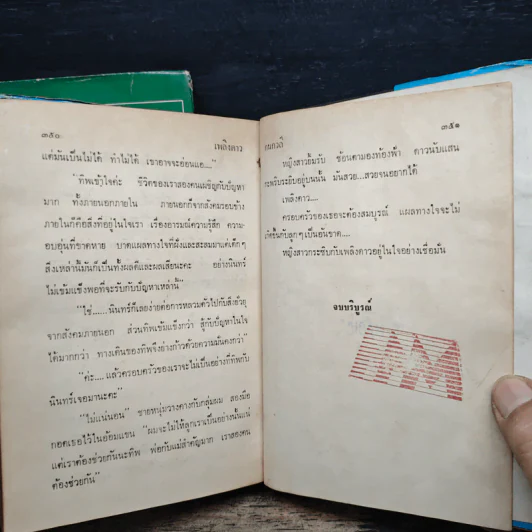 ๓๕๐ เพลิงดาว
แต่มันเป็นไม่ได้ ทำไม่ได้ เขาอาจจะอ่อนแอ...."
"ทิพเข้าใจค่ะ ชีวิตของเราสองคนเผชิญกับปัญหา
มาก ทั้งภายนอกภายใน ภายนอกก็จากสังคมรอบข้าง
ภายในก็คือสิ่งที่อยู่ในใจเรา เรื่องอารมณ์ความรู้สึก ความ
อบอุ่นที่ขาดหาย บาดแผลทางใจที่ฝังและสะสมมาแต่เด็กๆ
สิ่งเหล่านี้มันก็เป็นทั้งผลดีและผลเสียนะคะ อย่างนินทร์
ไม่เข้มแข็งพอที่จะรับกับปัญหาเหล่านี้"
"ใช่.....นินทร์ก็เลยง่ายต่อการหลวมตัวไปกับสิ่งยั่วยุ
จากสังคมภายนอก ส่วนทิพเข้มแข็งกว่า สู้กับปัญหาในใจ
ได้มากกว่า ทางเดินของทิพจึงย่างก้าวด้วยความมั่นคงกว่า"
"ค่ะ....แล้วครอบครัวของเราจะไม่เป็นอย่างที่ทิพกับ
นินทร์เจอมานะคะ"
"ไม่แน่นอน" ชายหนุ่มวางคางกับกลุ่มผม สองมือ
กอดเธอไว้ในอ้อมแขน "ผมจะไม่ให้ลูกเราเป็นอย่างนั้นแน่
แต่เราต้องช่วยกันนะทิพ พ่อกับแม่สำคัญมาก เราสองคน
ต้องช่วยกัน"
กนกวลี ๓๕๑
หญิงสาวยิ้มรับ ช้อนตามองท้องฟ้า ดาวนับแสน
กะพริบระยิบอยู่บนนั้น มันสวย...สวยจนอยากได้
เพลิงดาว....
ครอบครัวของเธอจะต้องสมบูรณ์ แผลทางใจจะไม่
เกิดขึ้นกับลูกๆ เป็นอันขาด....
หญิงสาวกระซิบกับเพลิงดาวอยู่ในใจอย่างเชื่อมั่น
จบบริบูรณ์